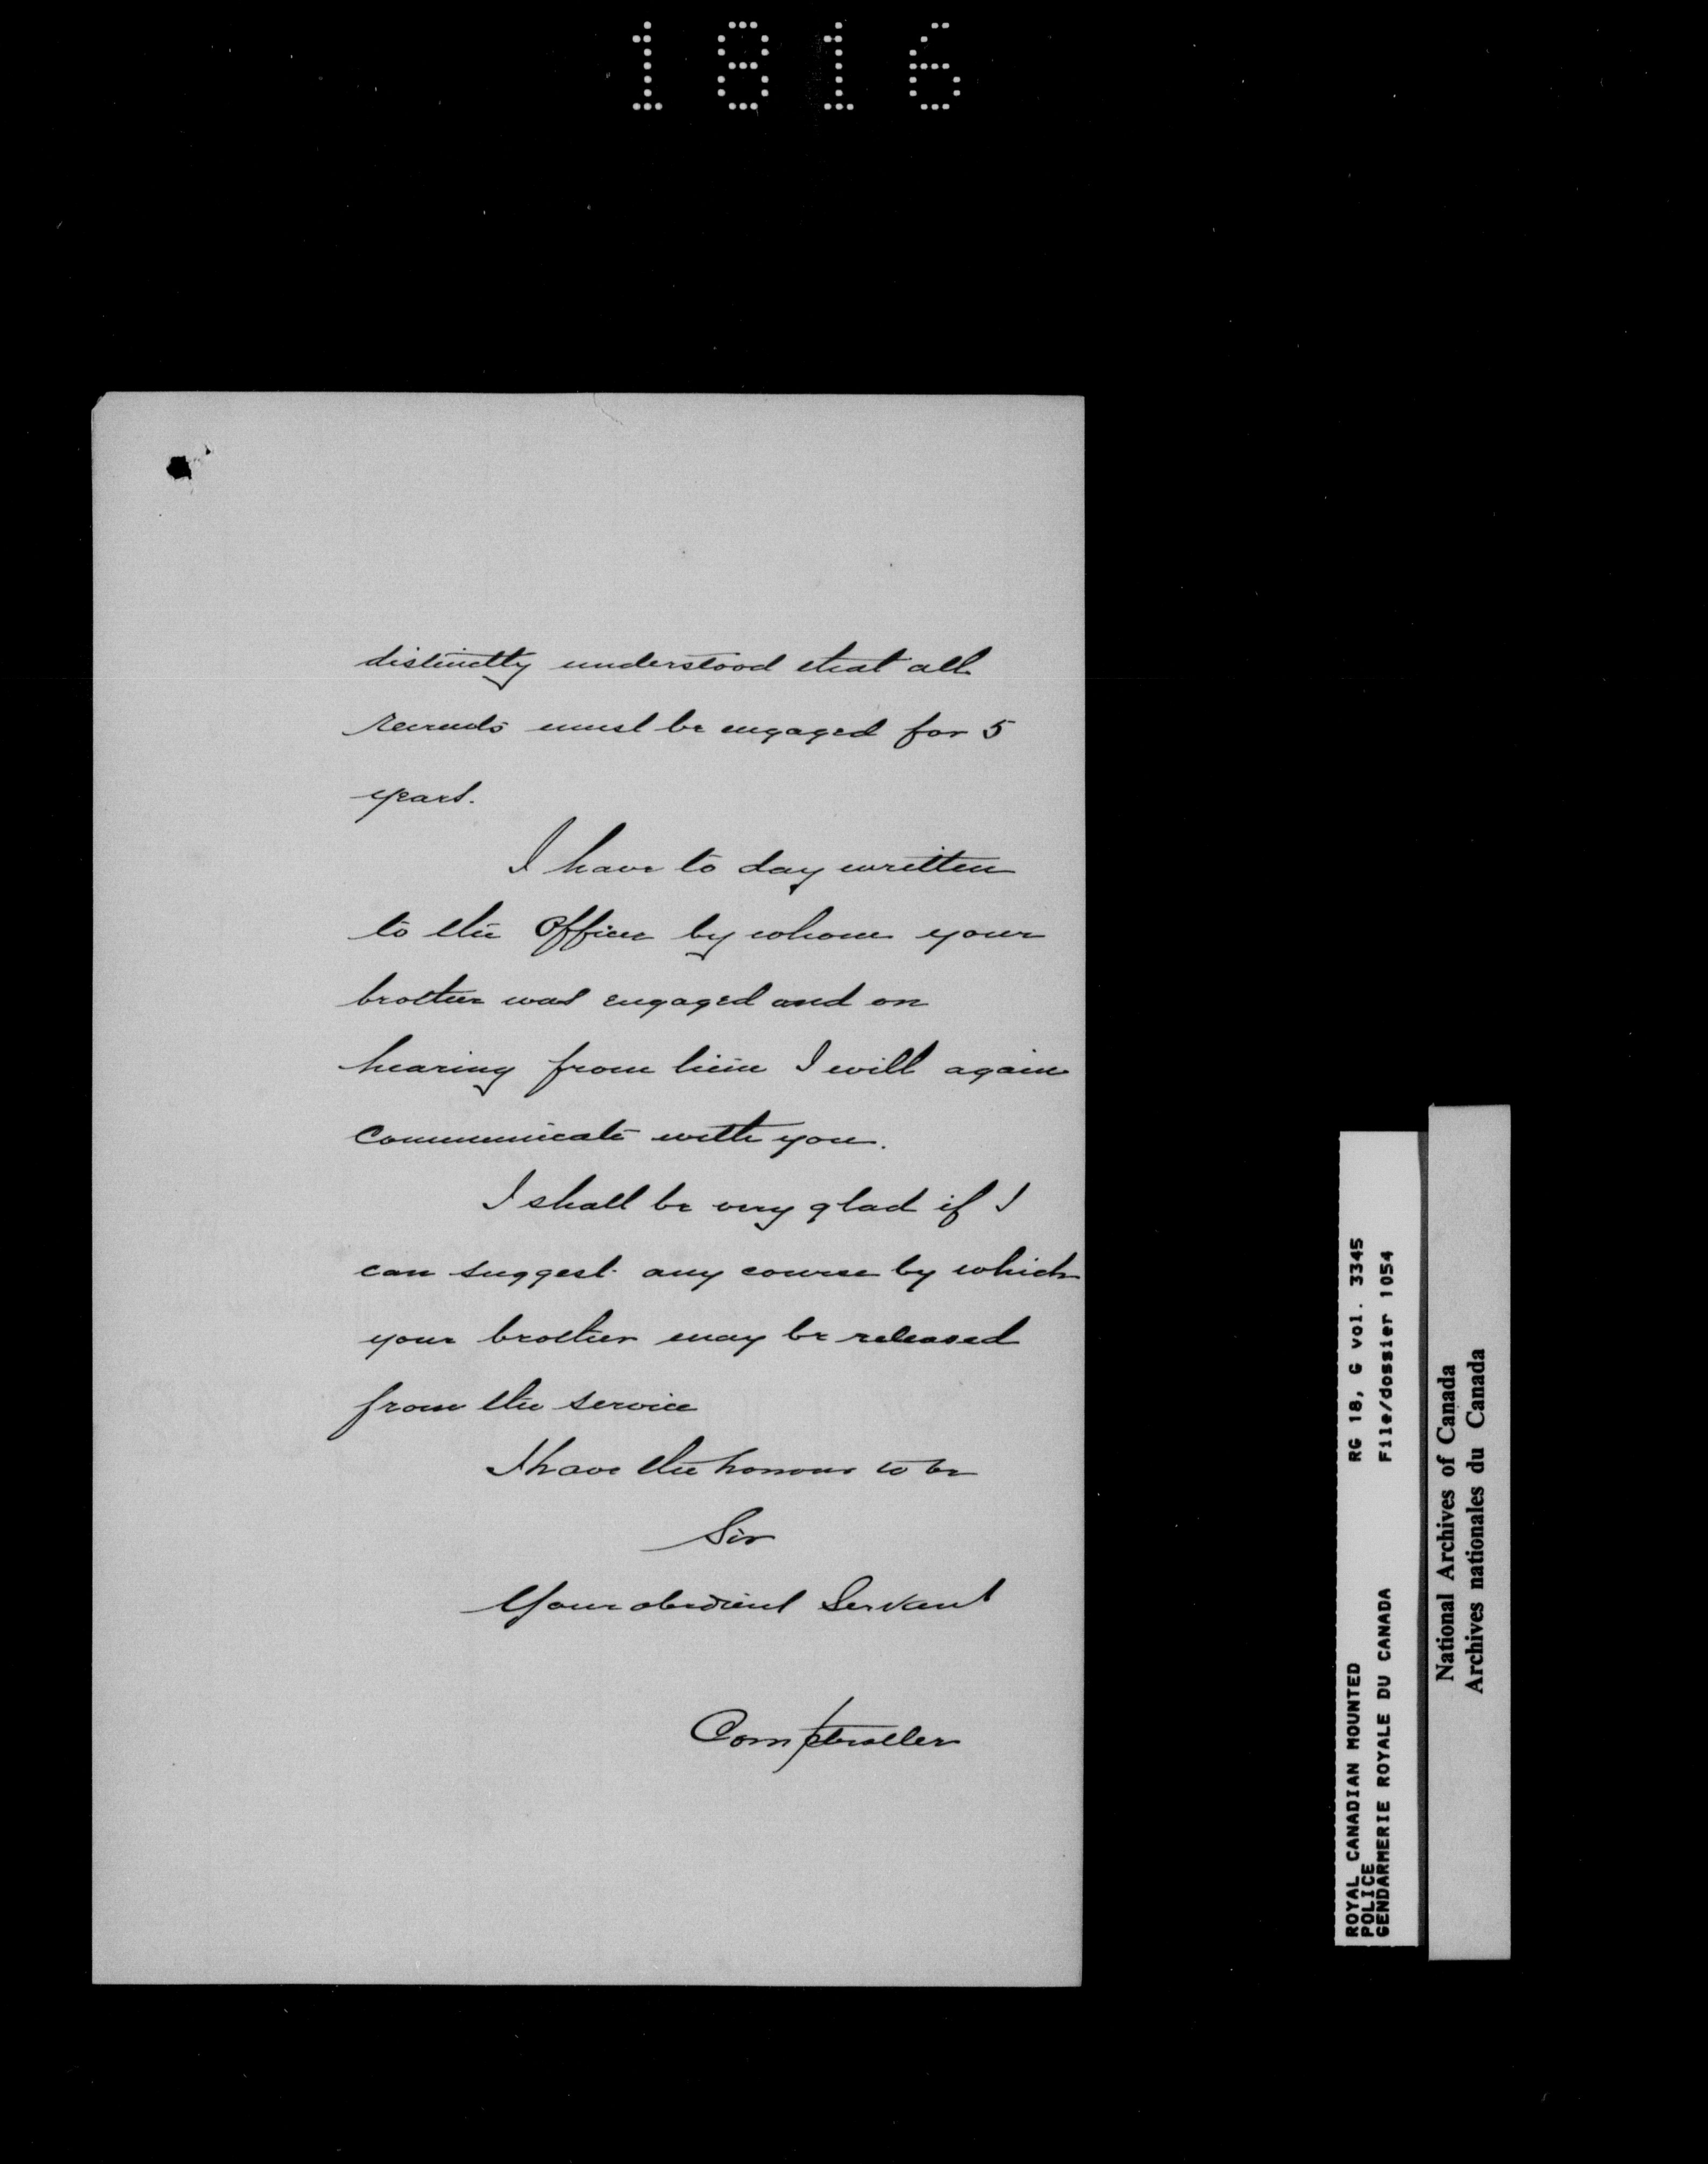 1816
distinctly understood that all
recruits must be engaged for 5
years.
I have to day written
to the Officer by whom your
brother was engaged and on
hearing from him I will again
communicate with you.
I shall be very glad if I
can suggest any course by which
your brother may be released
from the service
I have the honour to be
Sir
Your obedient Servant
Comptroller
ROYAL CANADIAN MOUNTED RG 18, G vol. 3345
POLICE File/dossier 1054
GENDARMERIE ROYALE DU CANADA
National Archives of Canada
Archives nationales du Canada